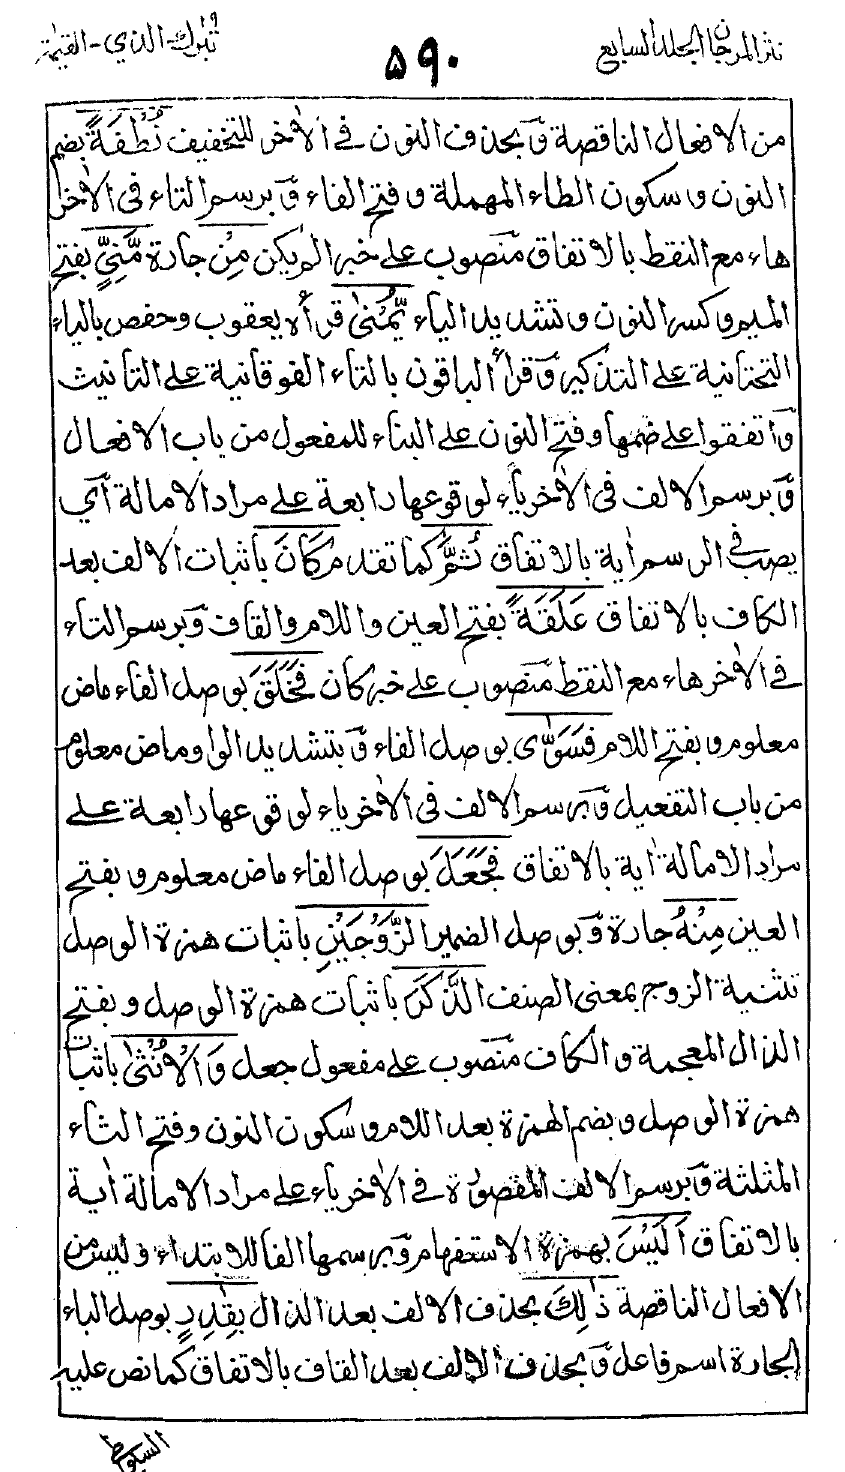 نثر المرجان الجلد السابع
٥٩٠
تبٰرك الذي - القيٰمة
من الافعال الناقصة وبحذف النون في الاٰخر للتخفيف نُطْفَةً بضم
النون وسكون الطاء المهملة وفتح الفاء وبرسم التاء في الاٰخر
هاء مع النقط بالاتفاق منصوب على خبر لم يكن مِنْ جارة مَّنِيٍّ بفتح
الميم وكسر النون وتشديد الياء يُّمْنٰى قرأه يعقوب وحفص بالياء
التحتانية على التذكير وقرأ الباقون بالتاء الفوقانية على التأنيث
واتفقوا على ضمها وفتح النون على البناء للمفعول من باب الافعال
وبرسم الالف في الاٰخر ياء لوقوعها رابعة على مراد الامالة أي
يصب في الرسم اٰية بالاتفاق ثُمَّ كما تقدم كَانَ باثبات الالف بعد
الكاف بالاتفاق عَلَقَةً بفتح العين واللام والقاف وبرسم التاء
في الاٰخر هاء مع النقط منصوب على خبر كان فَخَلَقَ بوصل الفاء ماض
معلوم وبفتح اللام فَسَوّٰى بوصل الفاء وبتشديد الواو ماض معلوم
من باب التفعيل وبرسم الالف في الاٰخر ياء لوقوعها رابعة على
مراد الامالة اٰية بالاتفاق فَجَعَلَ بوصل الفاء ماض معلوم وبفتح
العين مِنْهُ جارة وبوصل الضمير الزَّوْجَيْنِ باثبات همزة الوصل
تثنية الزوج بمعنى الصنف الذَّكَرَ باثبات همزة الوصل وبفتح
الذال المعجمة والكاف منصوب على مفعول جعل وَالْاُنْثٰى باثبات
همزة الوصل وبضم الهمزة بعد اللام وسكون النون وفتح الثاء
المثلثة وبرسم الالف المقصورة في الاٰخر ياء على مراد الامالة اٰية
بالاتفاق اَلَيْسَ بهمزة الاستفهام وبرسمها الفا للابتداء وليس من
الافعال الناقصة ذٰلِكَ بحذف الالف بعد الذال بِقٰدِرٍ بوصل الباء
الجارة اسم فاعل وبحذف الالف بعد القاف بالاتفاق كما نص عليه
السيوطي